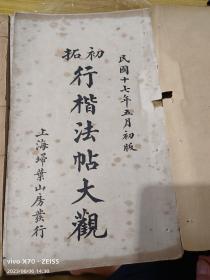 民國十七年五月初版
初拓
行楷法帖大觀
上海埽葉山房發行
vivo X70 · ZEISS
2023/06/06 14:30